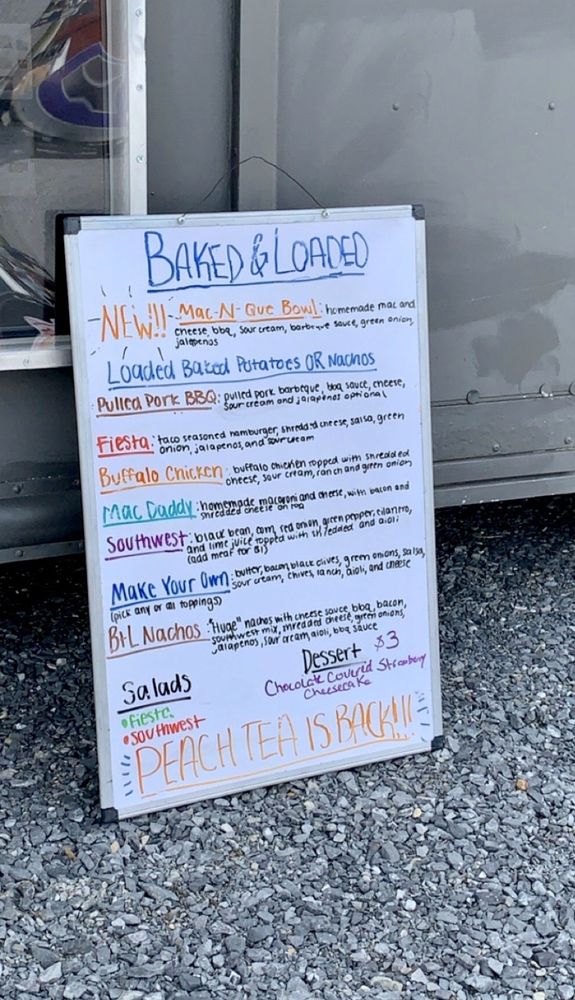 BAKED & LOADED
NEW!! Mac-N-Que Bowl: homemade mac and
cheese, bbq, sour cream, barbeque sauce, green onion,
jalapenos
Loaded Baked Potatoes OR Nachos
Pulled Pork BBQ: pulled pork barbeque, bbq sauce, cheese,
sour cream and jalapenos optional
Fiesta: taco seasoned hamburger, shredded cheese, salsa, green
onion, jalapenos, and sour cream
Buffalo Chicken: buffalo chicken topped with shredded
cheese, sour cream, ranch and green onion
Mac Daddy: homemade macaroni and cheese, with bacon and
shredded cheese on top
Southwest: black bean, corn, red onion, green pepper, cilantro,
and lime juice topped with shredded and aioli
(add meat for $1)
Make Your Own: butter, bacon, black olives, green onions, salsa,
(pick any or all toppings) sour cream, chives, ranch, aioli, and cheese
B+L Nachos: "Huge" nachos with cheese sauce, bbq, bacon,
southwest mix, shredded cheese, green onions,
jalapenos, sour cream, aioli, bbq sauce
Dessert $3
Chocolate Covered Strawberry
Cheesecake
Salads
•Fiesta
•Southwest
PEACH TEA IS BACK!!!